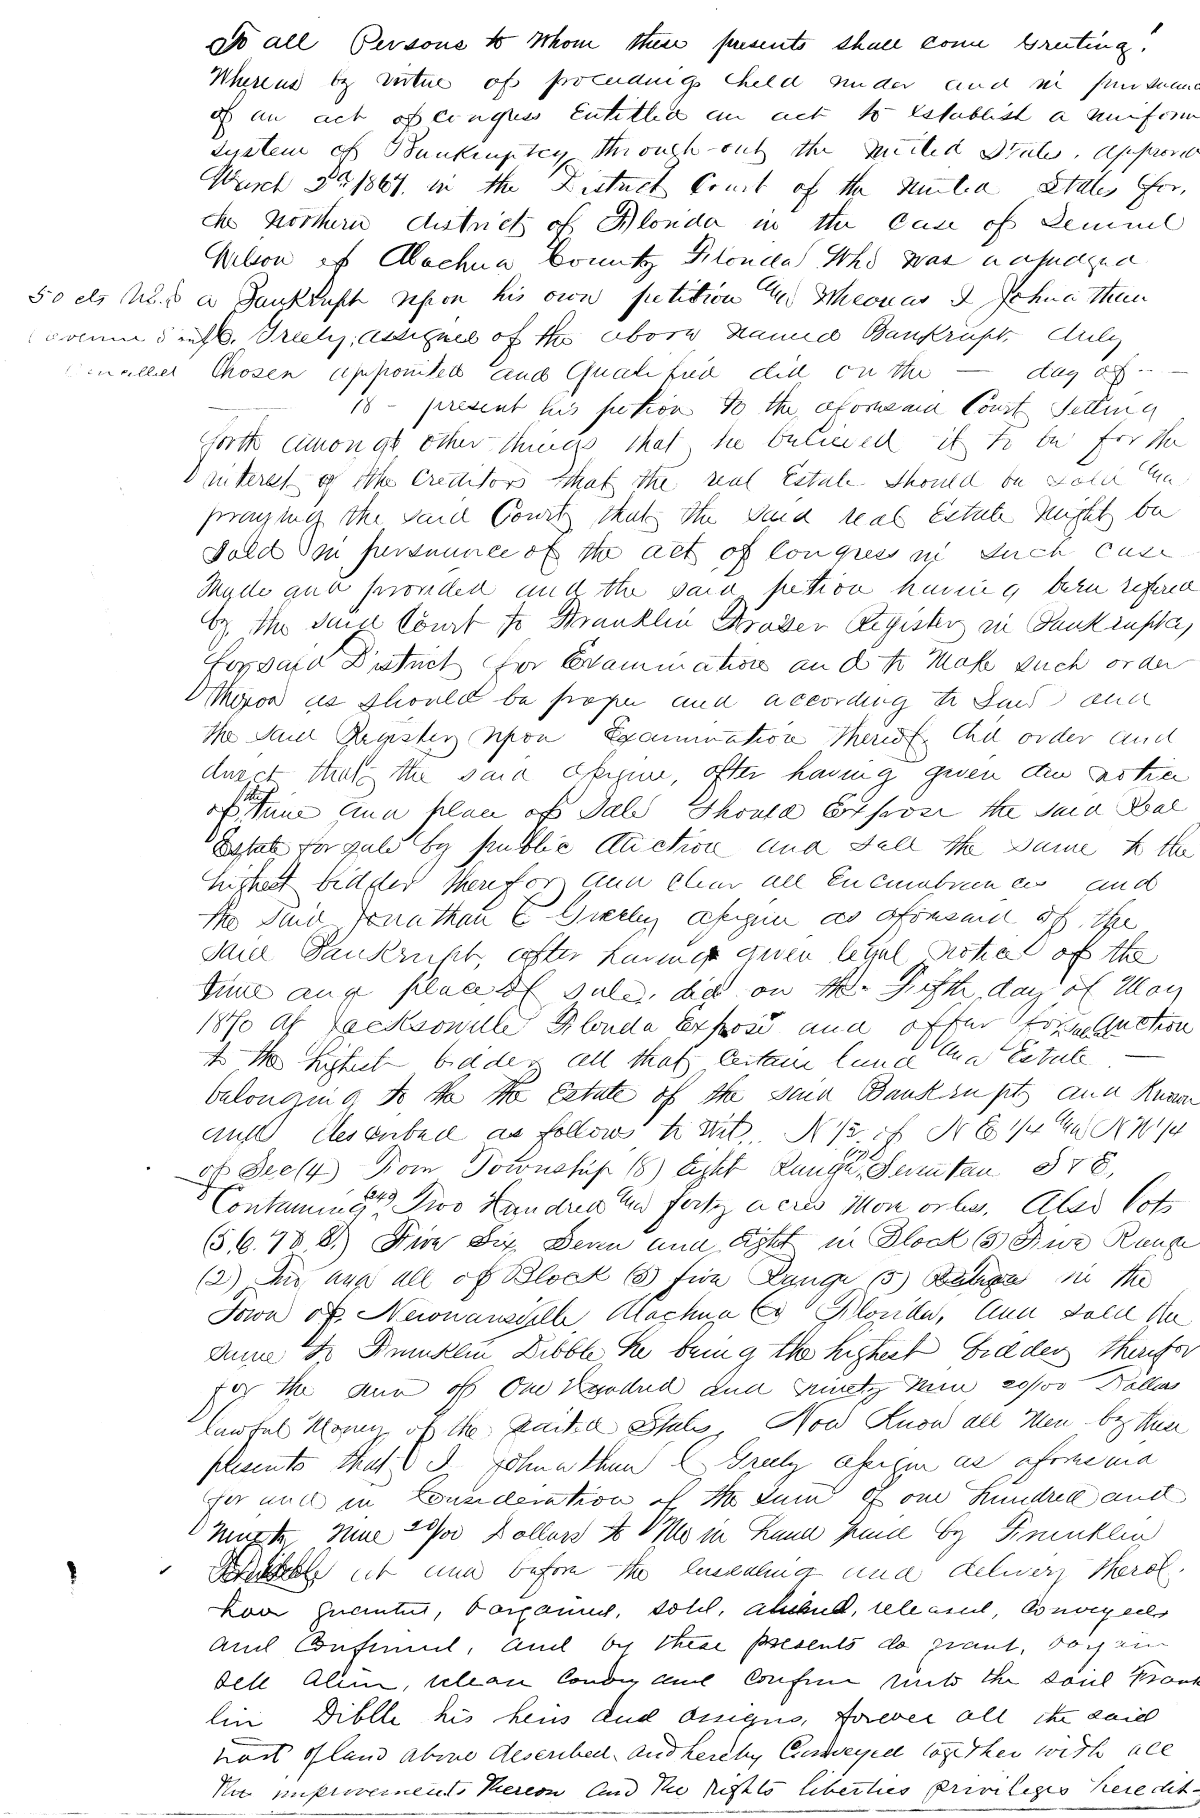 To all Persons to Whom these presents shall come Greeting!
Whereas by virtue of proceedings held under and in pursuance
of an act of Congress Entitled an act to establish a uniform
system of Bankruptcy through-out the United States. approved
March 2d 1867. in the District Court of the United States for,
the Northern district of Florida in the Case of Lemuel
Wilson of Alachua County Florida Who was adjudged
50 cts U.S. a Bankrupt upon his own petition and Wheonas I Johnathan
C. Greely, assignee of the above named Bankrupt, duly
Cancelled Chosen appointed and Qualified did on the — day of —
18 – present his petion to the aforesaid Court Setting
forth amongst other things that he believed it to be for the
interest of the Creditors that the real Estate should be sold and
praying the said Court that the said real Estate Might be
Sold in persuance of the act of Congress in such case
Made and provided and the said petion having been refered
by the said Court to Franklin Frazer Register in Bankruptcy
for said District for Examination and to Make such order
thereon as should be proper and according to Law and
the said Register upon Examination thereof did order and
direct that the said assignee, after having given due notice
of the time and place of Sale Should Expose the said Real
Estate for sale by public Auction and sell the same to the
highest bidder therefor and clear all Encumbrances and
the said Jonathan C Greeley assignee as aforesaid of the
said Bankrupt, after having given legal notice of the
time and place of sale. did on the Fifth day of May
1870 at Jacksonville Florida Expose and offer for Auction
to the highest bidder all that certain land and Estate —
belonging to the the Estate of the said Bankrupt and Known
and described as follows to Wit. N 1/2 of N E 1/4 and N W 1/4
of Sec (4) Township (8) Eight Range (17) Seventeen S & E,
Containing (240) Two Hundred and forty acres More or less. Also Lots
(5.6.7 & 8.) Five Six, Seven and Eight in Block (5) Five Range
(2) Two and all of Block (5) five Range (5) in the
Town of Newnansville Alachua Co Florida, and sold the
same to Franklin Dibble he being the highest bidder therefor
for the sum of One Hundred and ninety nine 20/100 Dollars
lawful Money of the United States. Now Know all Men by these
presents that I Johnathan C Greely assignee as aforesaid
for and in Consideration of the sum of one hundred and
Ninety nine 20/100 Dollars to Me in hand paid by Franklin
Dibble at and before the Ensealing and delivery thereof.
have granted, bargained, sold, aliened, released, Conveyed
and Confirmed, and by these presents do grant, bargain
sell Alien, release Convey and Confirm unto the said Frank
lin Dibble his heirs and assigns, forever all the said
tract of land above described and hereby Conveyed together with all
the improvements thereon and the rights liberties privileges heredit-